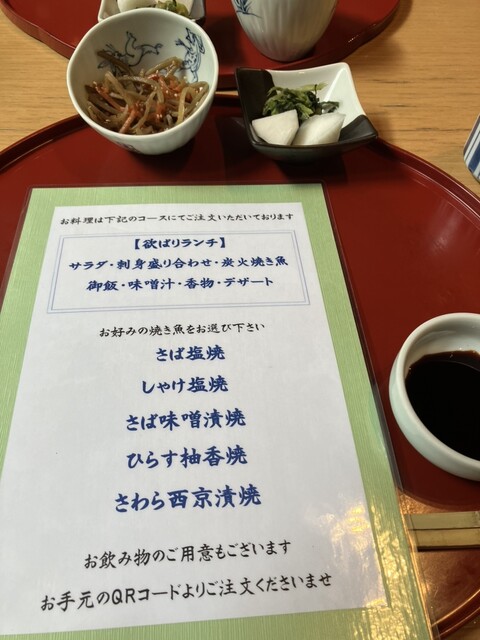 お料理は下記のコースにてご注文いただいております
【欲ばりランチ】
サラダ・刺身盛り合わせ・炭火焼き魚
御飯・味噌汁・香物・デザート
お好みの焼き魚をお選び下さい
さば塩焼
しゃけ塩焼
さば味噌漬焼
ひらす柚香焼
さわら西京漬焼
お飲み物のご用意もございます
お手元のQRコードよりご注文くださいませ